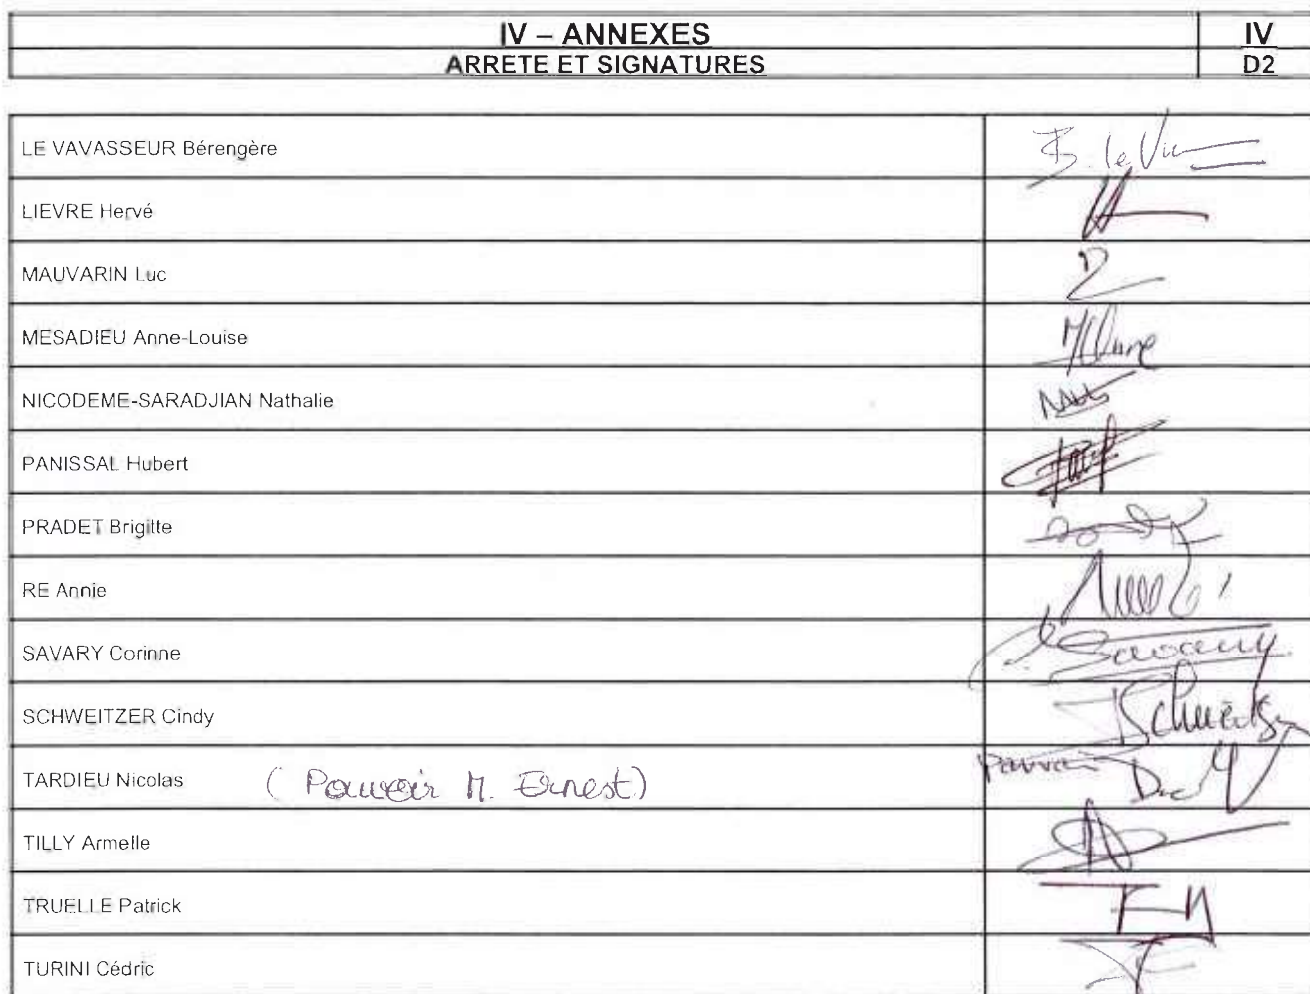 IV – ANNEXES
IV
ARRETE ET SIGNATURES
D2
LE VAVASSEUR Bérengère
LIEVRE Hervé
MAUVARIN Luc
MESADIEU Anne-Louise
NICODEME-SARADJIAN Nathalie
PANISSAL Hubert
PRADET Brigitte
RE Annie
SAVARY Corinne
Savary
SCHWEITZER Cindy
TARDIEU Nicolas (Pouvoir M. Ernest) Pouvoir
TILLY Armelle
TRUELLE Patrick
TURINI Cédric